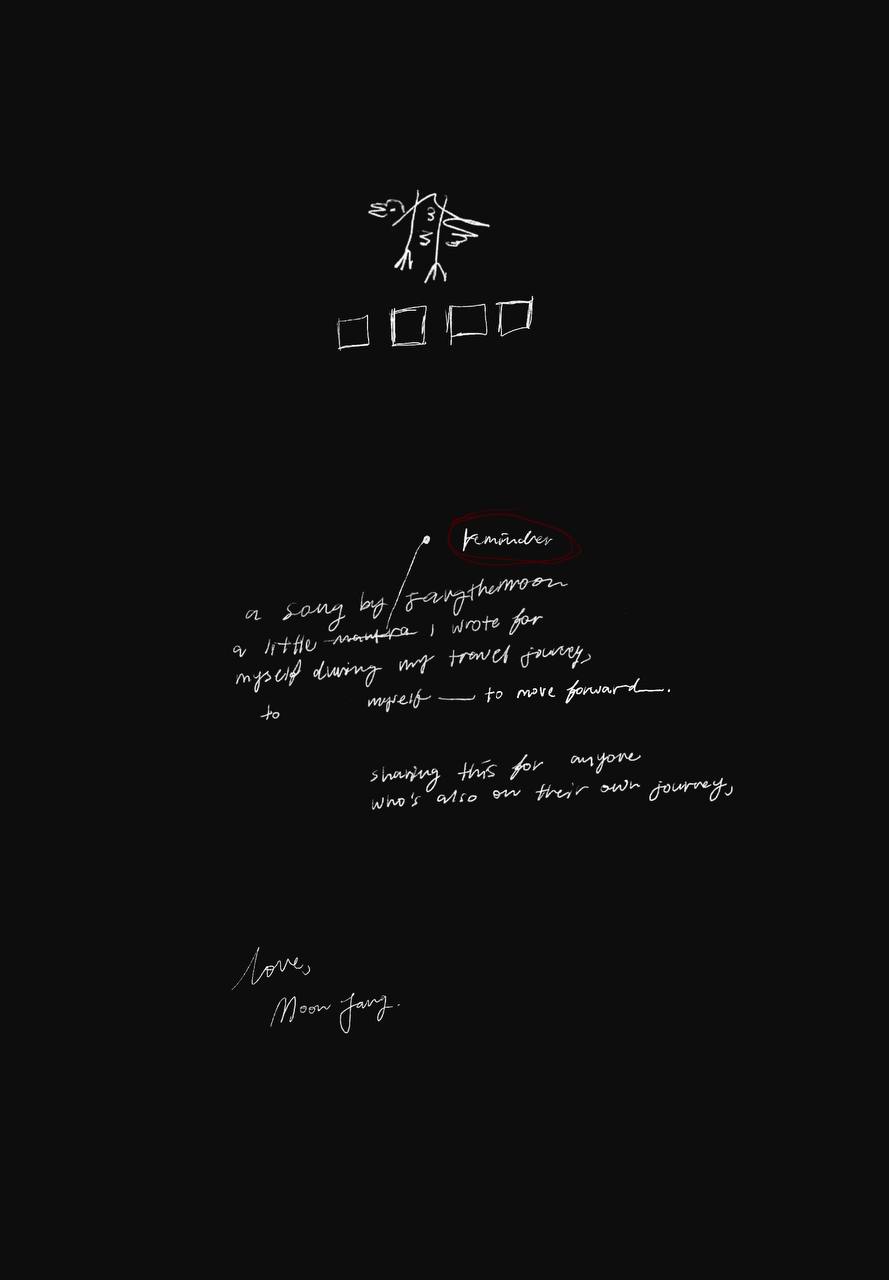 reminder
a song by jangthemoon
a little mantra I wrote for
myself during my travel journey,
to myself — to move forward.
sharing this for anyone
who's also on their own journey,
love,
Moon Jang.